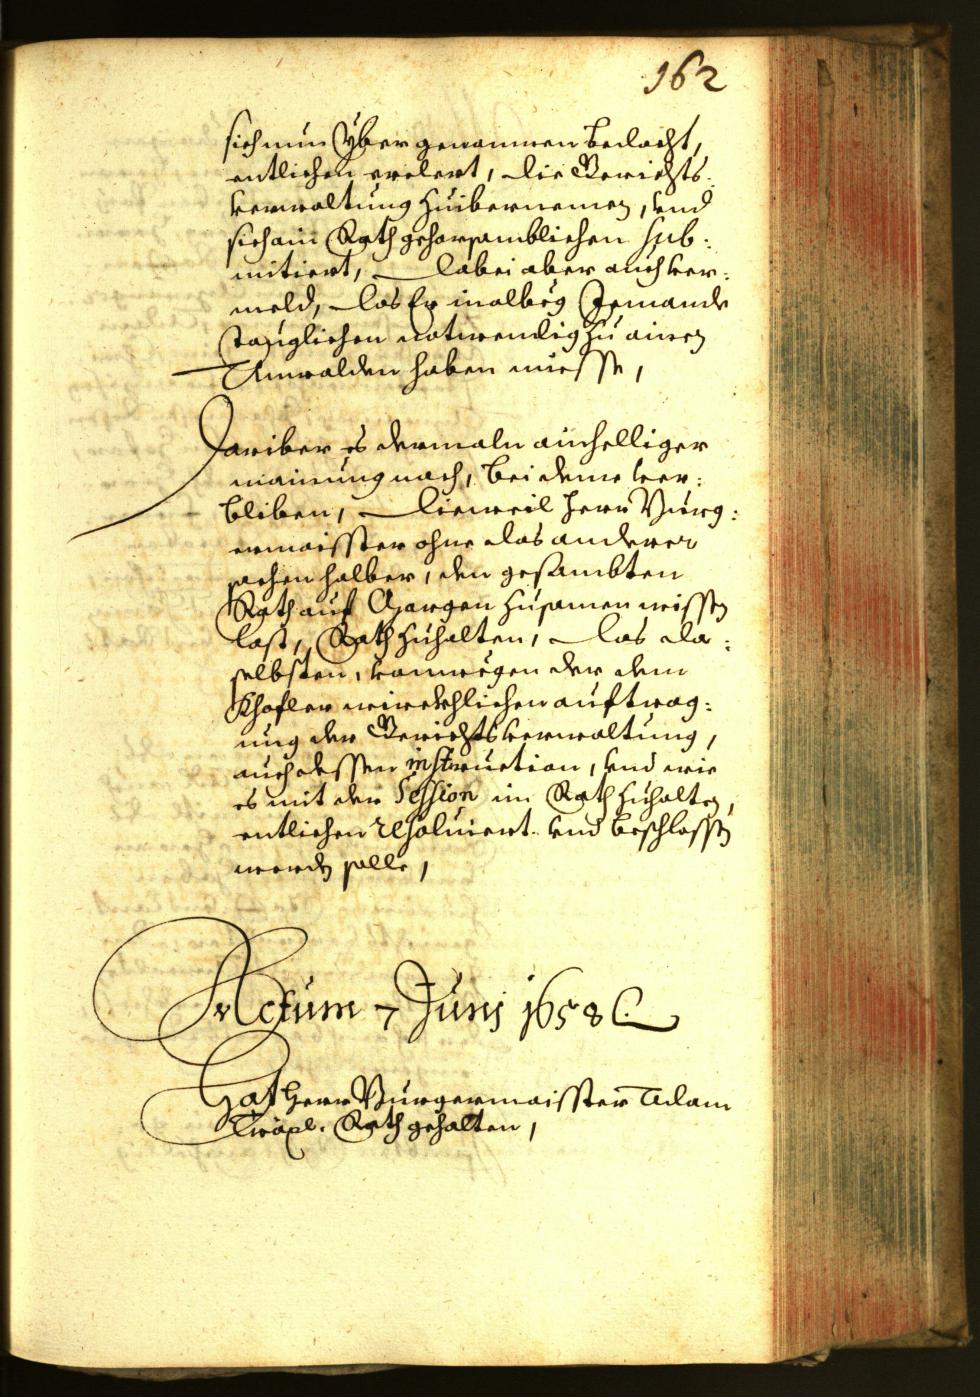 162
sich nun Yber genommen bedacht,
entlichen erclert, die Gerichts:
verwaltung zuibernemen, vnd
sich ain Rath gehorsamblichen sub:
mitiert, dabei aber auch ver:
meld, das Er inalweg Jemandt
tauglichen notwendig zu ainen
Anwalden haben miesse,
Dariber es dermaln ainhelliger
mainung nach, bei deme ver:
bliben, dieweil herr Burg:
ermaisster ohne das anderer
sachen halber, den gesambten
Rath auf Morgen zusamen wissen
last, Rath zuhalten, das da:
selbsten, vonwegen der dem
Khofler wirckhlichen auftrag:
ung der Gerichtsverwaltung,
auch dessen instruction, vnd wie
es mit der Session im Rath zuhalten,
entlichen resoluiert vnd beschlossen
werden solle,
Actum 7 Junj 1658
Hat Herr Burgermaisster Adam
Rath gehalten,